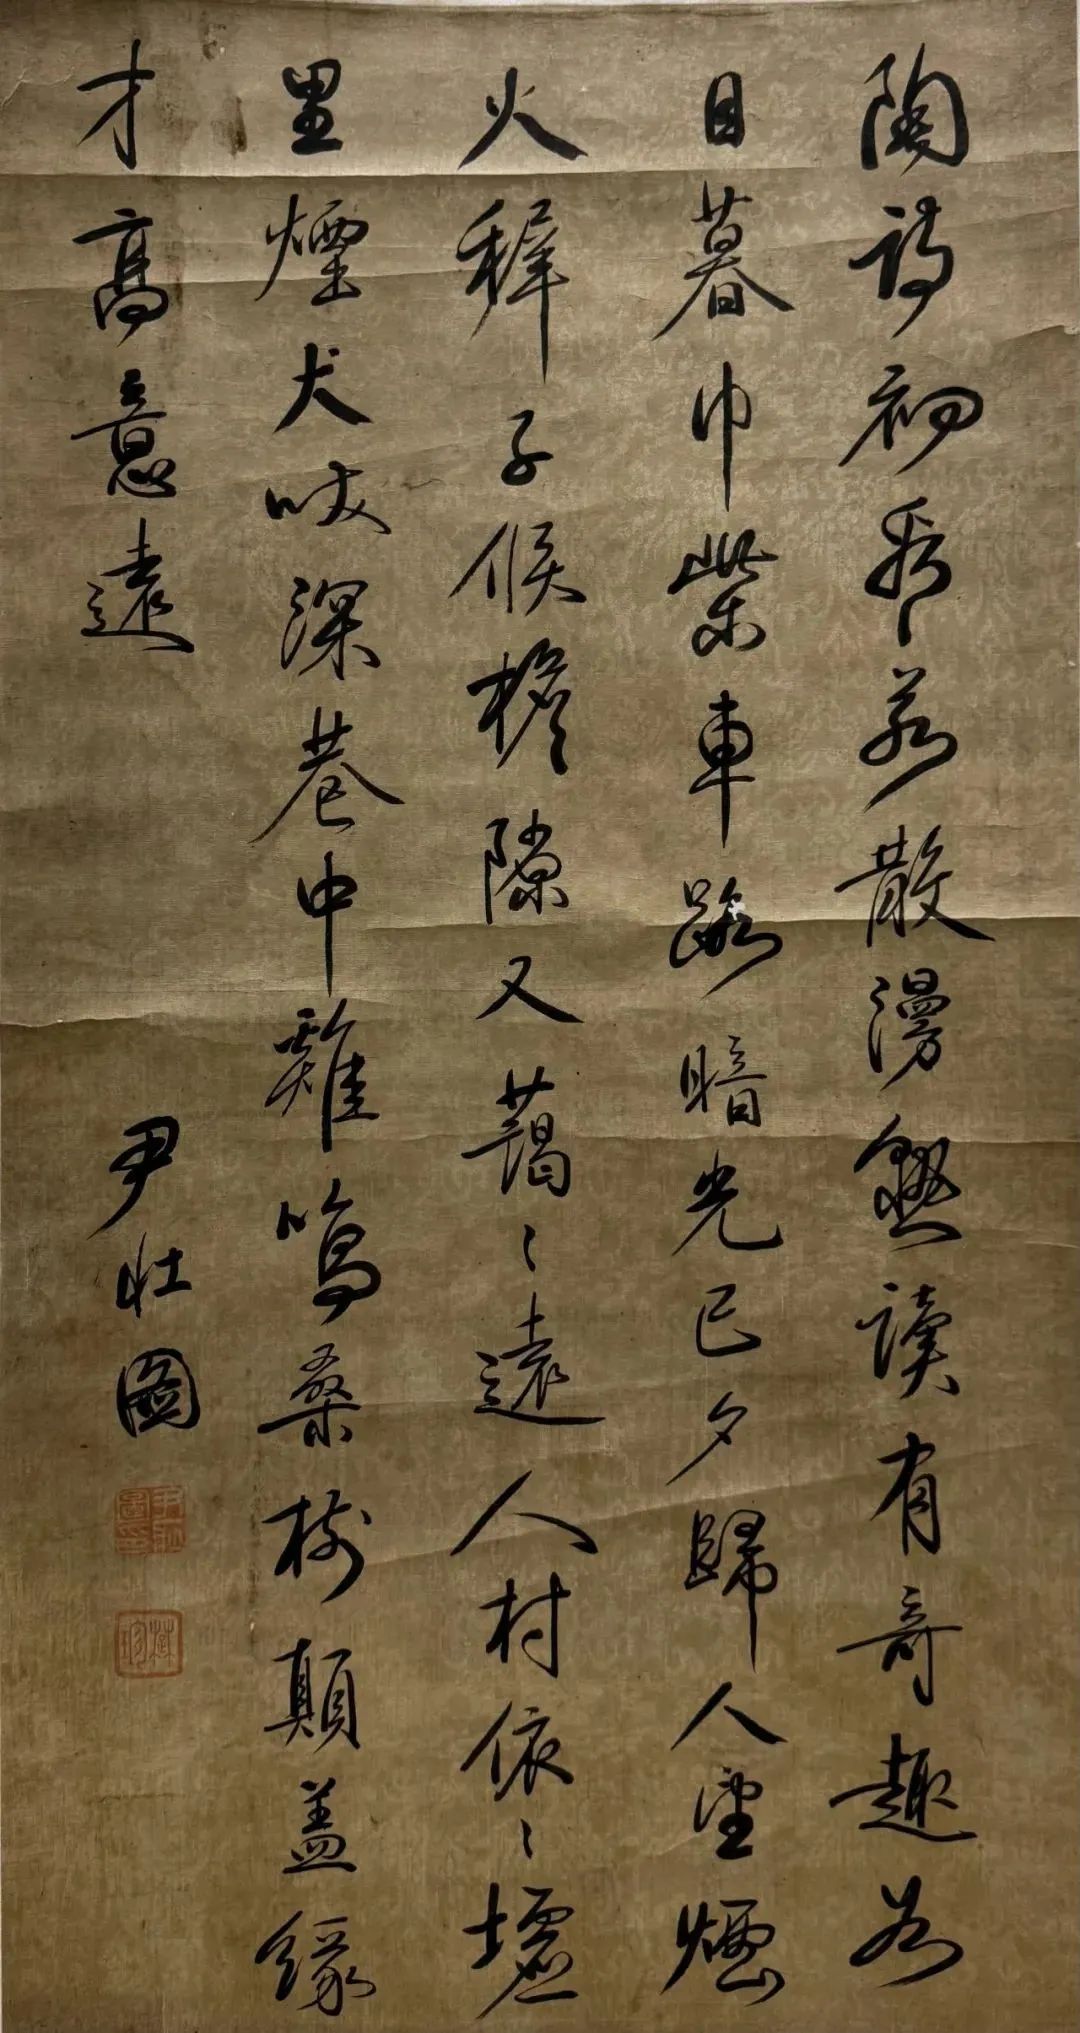 陶詩初看若散漫熟讀有奇趣如
日暮巾柴車路暗光已夕歸人望煙
火稺子候檐隙又藹〻遠人村依〻墟
里煙犬吠深巷中雞鳴桑樹顛蓋緣
才高意遠
尹壯圖
尹壯圖印
楚珍